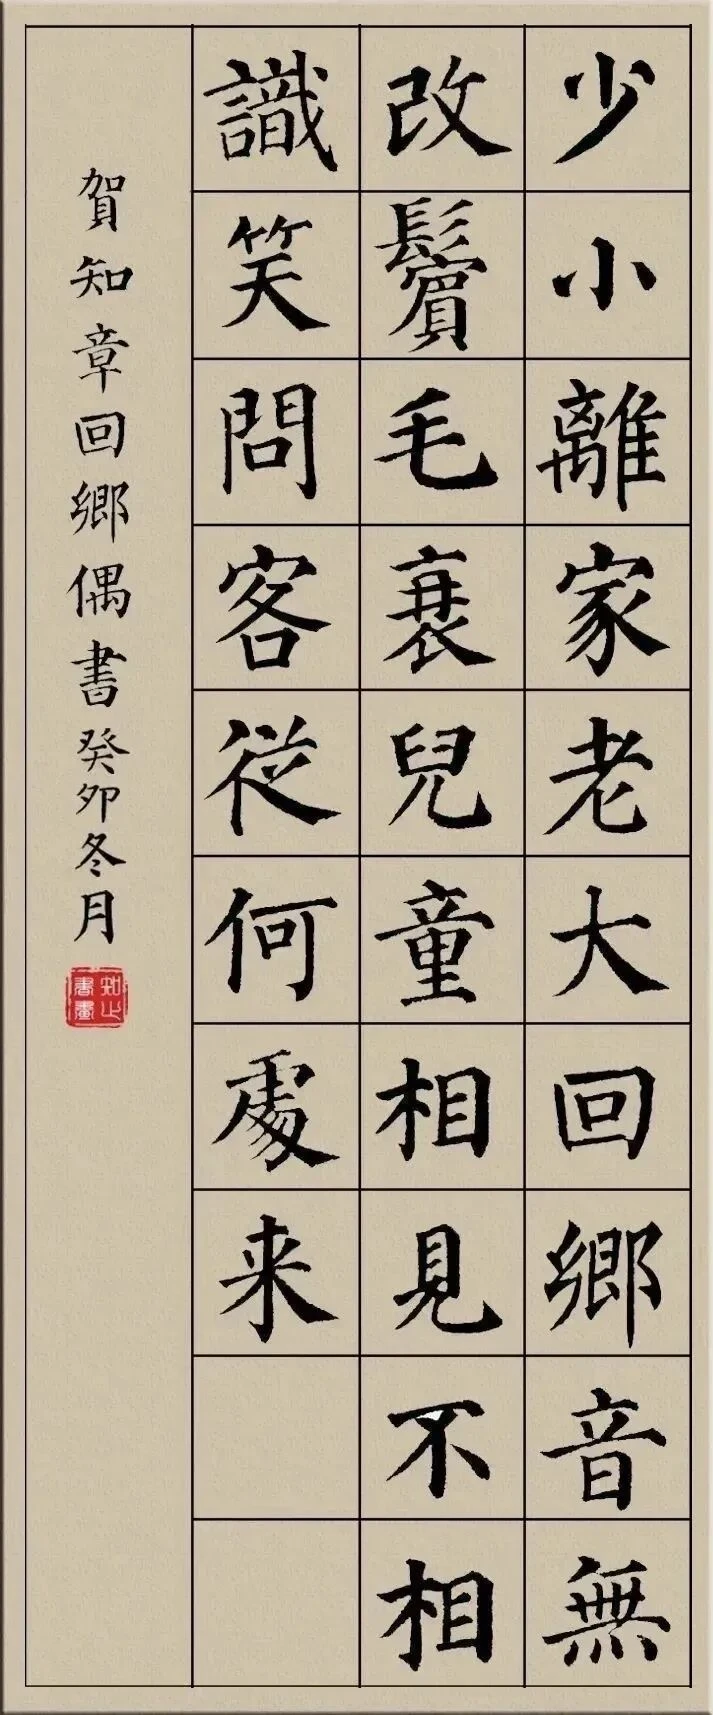 少小離家老大回鄉音無
改鬢毛衰兒童相見不相
識笑問客從何處来
賀知章回鄉偶書癸卯冬月
知止書畫